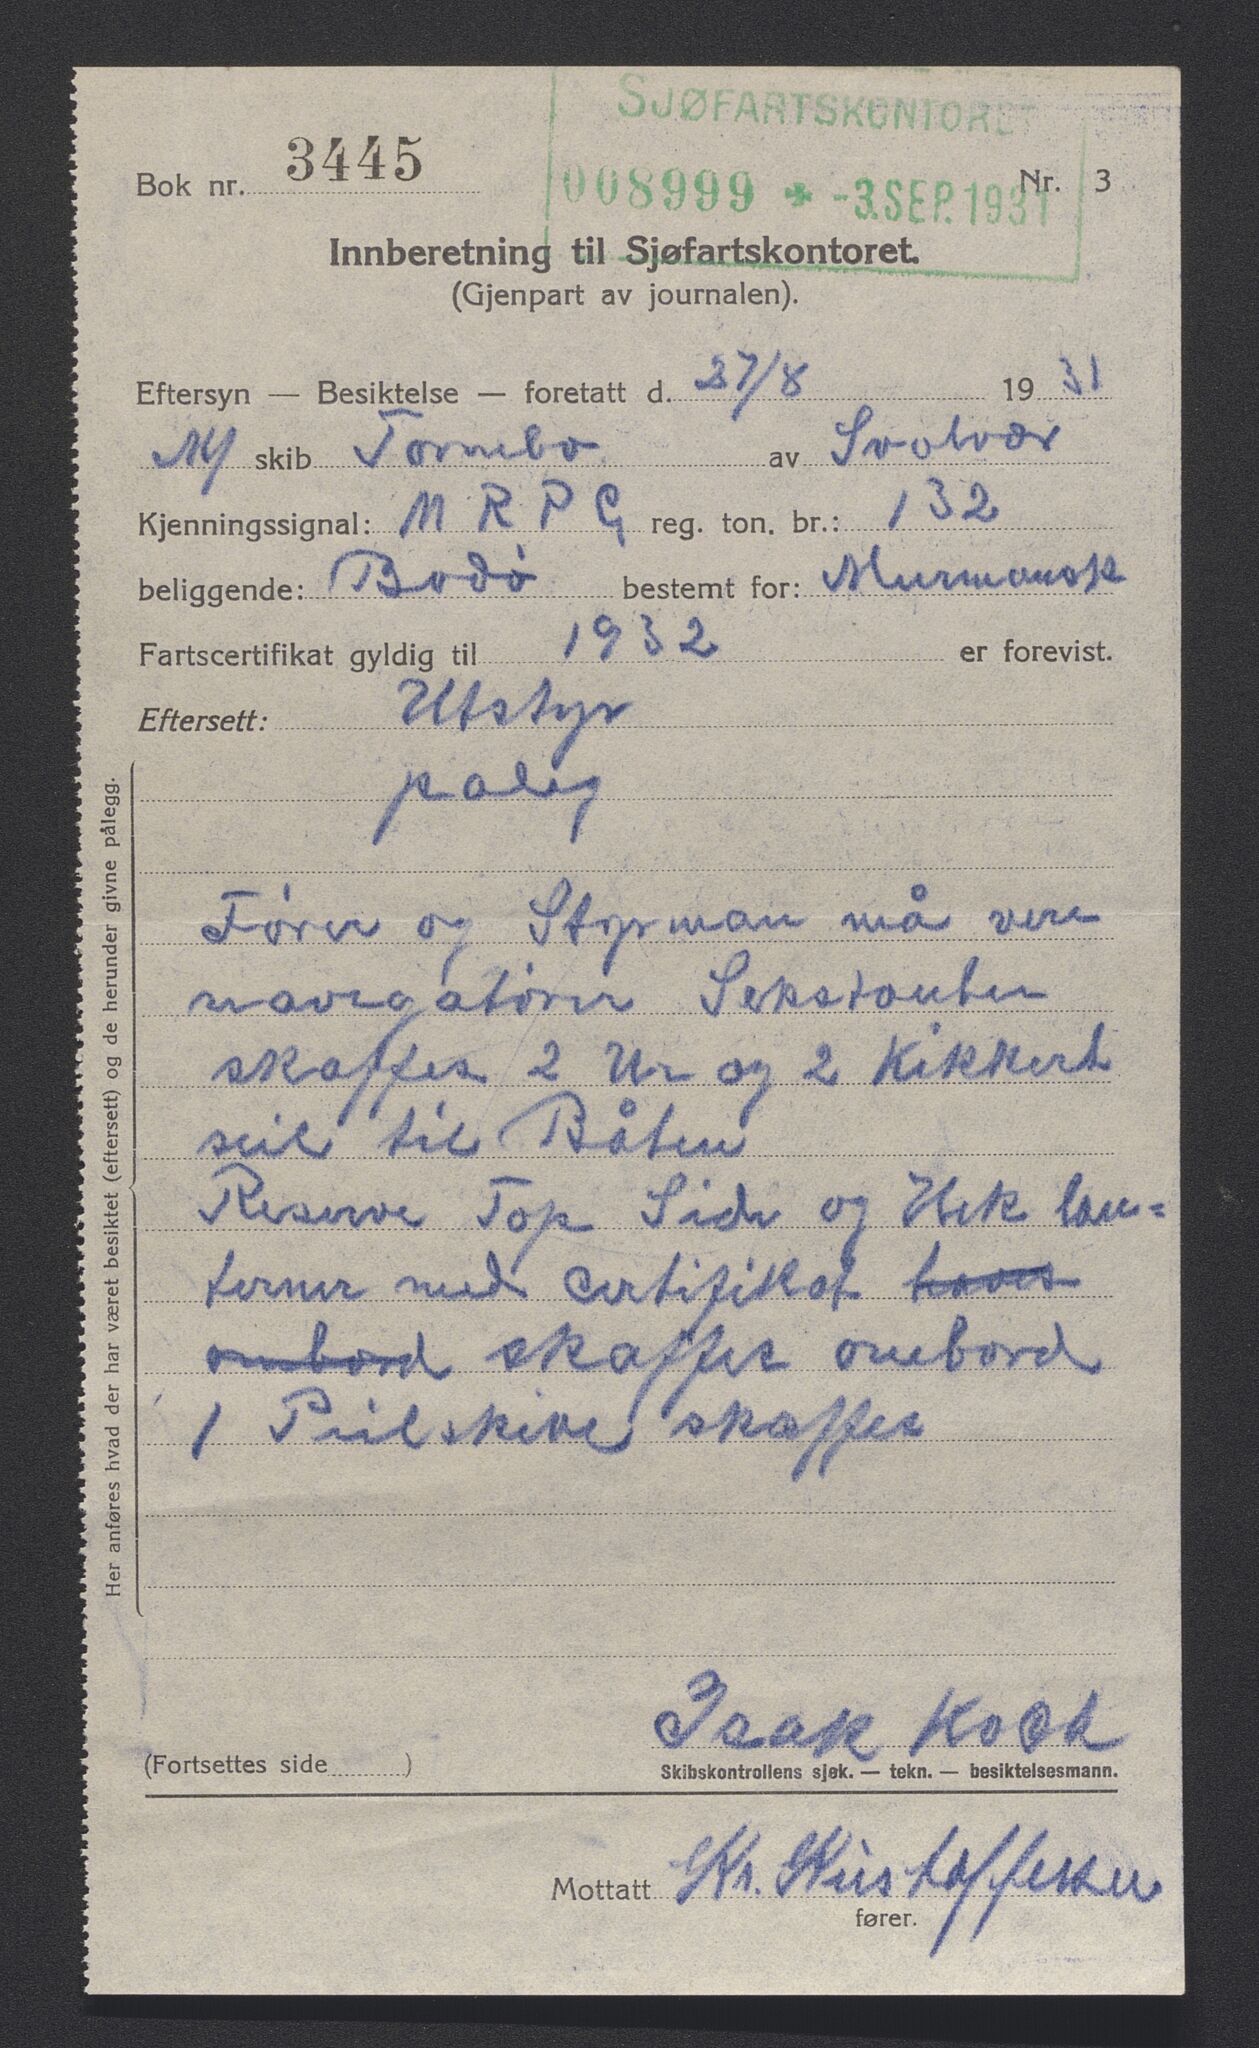 SJØFARTSKONTORET
008999 * -3.SEP.1931
Bok nr. 3445 Nr. 3
Innberetning til Sjøfartskontoret.
(Gjenpart av journalen).
Eftersyn — Besiktelse — foretatt d. 27/8 1931
M/ skib Tornebo av Svolvær
Kjenningssignal: M R P G reg. ton. br.: 132
beliggende: Bodø bestemt for: Murmansk
Fartscertifikat gyldig til 1932 er forevist.
Eftersett: Utstyr
paleg
Fører og Styrman må vere
navigatører Sekstanter
skaffes 2 Ur og 2 Kikkert
seil til Båten
Reserve Top Side og Hek lan=
terner med certifikat haves
ombord skaffes ombord
1 Piilskive skaffes
Her anføres hvad der har været besiktet (eftersett) og de herunder givne pålegg.
Isak Koch
(Fortsettes side ) Skibskontrollens sjøk. — tekn. — besiktelsesmann.
Mottatt Kr. Kristoffersen
fører.